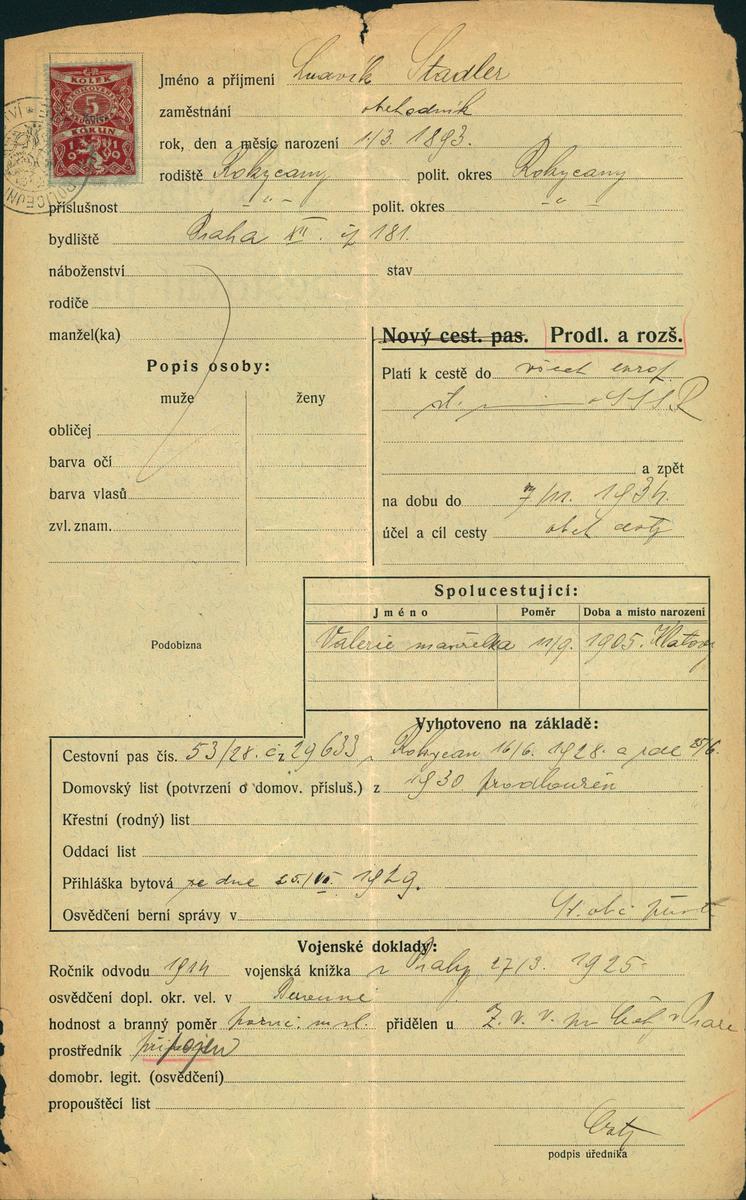 KOLEK
5
KORUN
1919
Jméno a příjmení Ludvík Stadler
zaměstnání obchodník
rok, den a měsíc narození 1/3. 1893.
rodiště Rokycany polit. okres Rokycany
příslušnost - " - polit. okres - " -
bydliště Praha XII. čp 181.
náboženství stav
rodiče
manžel(ka)
Nový cest. pas. Prodl. a rozš.
Popis osoby:
muže ženy
obličej
barva očí
barva vlasů
zvl. znam.
Platí k cestě do všech evrop.
st. SSSR
a zpět
na dobu do 1934.
účel a cíl cesty obch cesty
Spolucestující:
Jméno Poměr Doba a místo narození
Valerie manželka 11/9. 1905. Klatovy
Podobizna
Vyhotoveno na základě:
Cestovní pas čís. 53/28. čz 29633 z Rokycan 16/6. 1928. a ze dne 25/6.
Domovský list (potvrzení o domov. přísluš.) z 1930 prodloužen
Křestní (rodný) list
Oddací list
Přihláška bytová ze dne 25./VI. 1929.
Osvědčení berní správy v
Vojenské doklady:
Ročník odvodu 1914 vojenská knížka z Prahy 27/3. 1925
osvědčení dopl. okr. vel. v Berouně
hodnost a branný poměr přidělen u Z. v. v. pro Čechy v Praze
prostředník připojen
domobr. legit. (osvědčení)
propouštěcí list
podpis úředníka